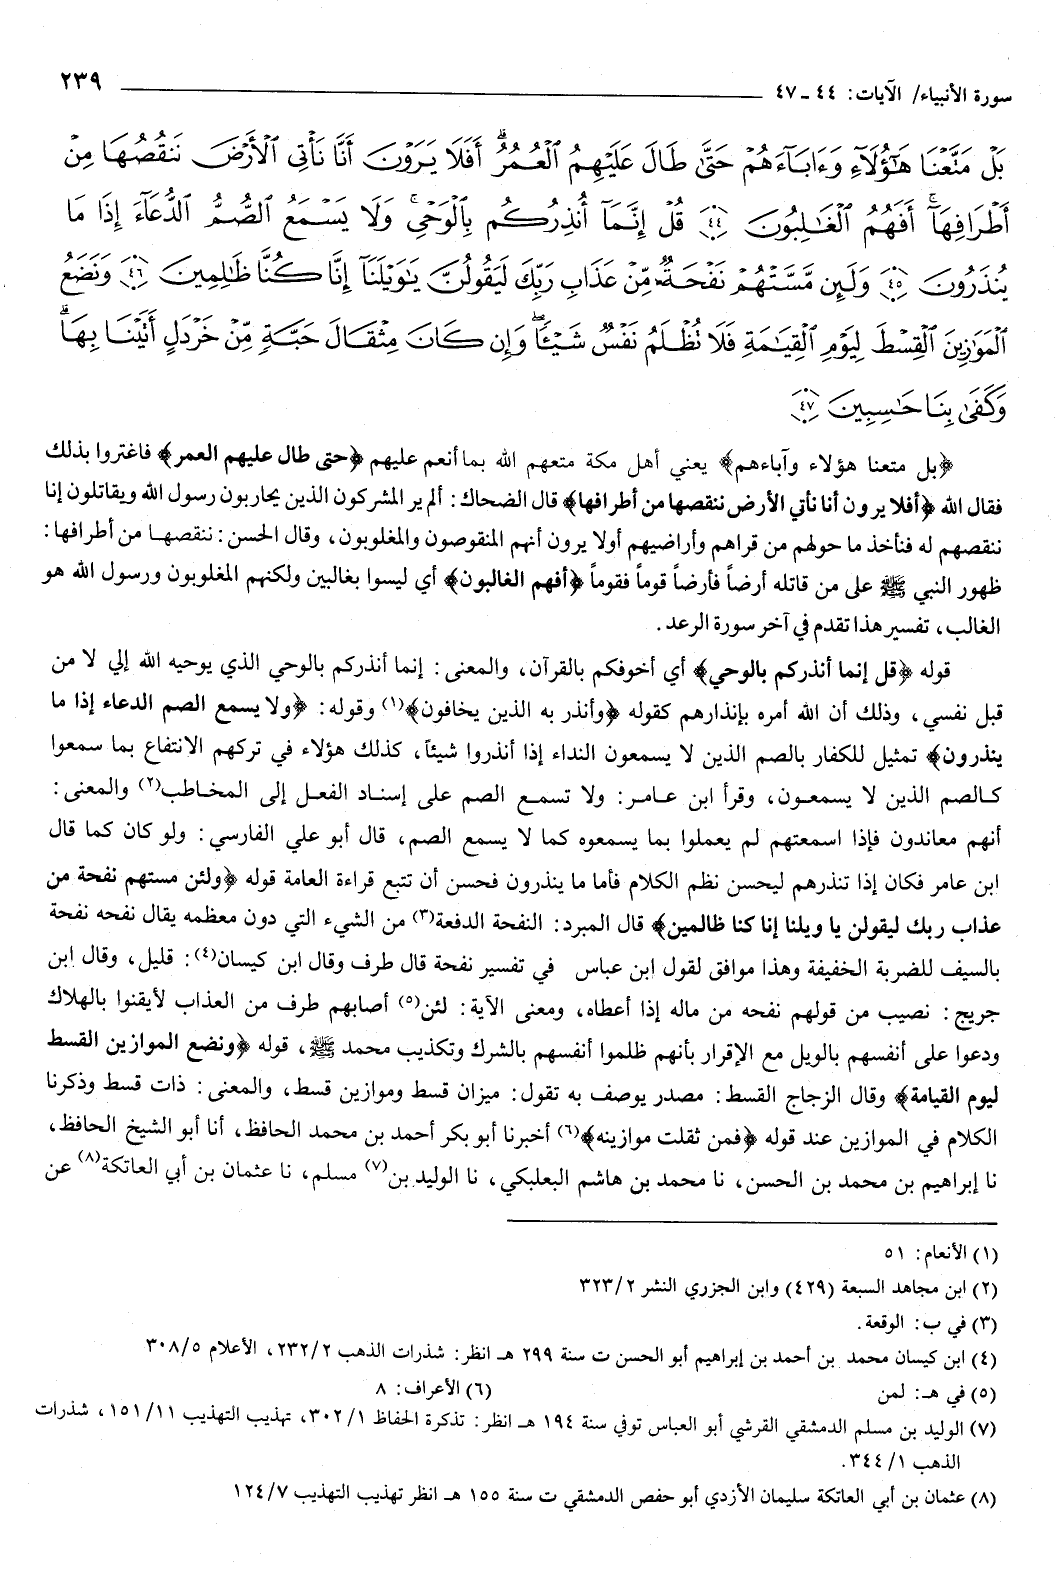 سورة الأنبياء/ الآيات: ٤٤ ـ ٤٧
٢٣٩
بَلْ مَتَّعْنَا هَٰٓؤُلَآءِ وَءَابَآءَهُمْ حَتَّىٰ طَالَ عَلَيْهِمُ ٱلْعُمُرُ ۗ أَفَلَا يَرَوْنَ أَنَّا نَأْتِى ٱلْأَرْضَ نَنقُصُهَا مِنْ
أَطْرَافِهَآ ۚ أَفَهُمُ ٱلْغَٰلِبُونَ ٤٤ قُلْ إِنَّمَآ أُنذِرُكُم بِٱلْوَحْىِ ۚ وَلَا يَسْمَعُ ٱلصُّمُّ ٱلدُّعَآءَ إِذَا مَا
يُنذَرُونَ ٤٥ وَلَئِن مَّسَّتْهُمْ نَفْحَةٌ مِّنْ عَذَابِ رَبِّكَ لَيَقُولُنَّ يَٰوَيْلَنَآ إِنَّا كُنَّا ظَٰلِمِينَ ٤٦ وَنَضَعُ
ٱلْمَوَٰزِينَ ٱلْقِسْطَ لِيَوْمِ ٱلْقِيَٰمَةِ فَلَا تُظْلَمُ نَفْسٌ شَيْـًٔا ۖ وَإِن كَانَ مِثْقَالَ حَبَّةٍ مِّنْ خَرْدَلٍ أَتَيْنَا بِهَا ۗ
وَكَفَىٰ بِنَا حَٰسِبِينَ ٤٧
﴿بل متعنا هؤلاء وآباءهم﴾ يعني أهل مكة متعهم الله بما أنعم عليهم ﴿حتى طال عليهم العمر﴾ فاغتروا بذلك
فقال الله ﴿أفلا يرون أنا نأتي الأرض ننقصها من أطرافها﴾ قال الضحاك: ألم ير المشركون الذين يحاربون رسول الله ويقاتلون إنا
ننقصهم له فنأخذ ما حولهم من قراهم وأراضيهم أولا يرون أنهم المنقوصون والمغلوبون، وقال الحسن: ننقصها من أطرافها:
ظهور النبي ﷺ على من قاتله أرضاً فأرضاً قوماً فقوماً ﴿أفهم الغالبون﴾ أي ليسوا بغالبين ولكنهم المغلوبون ورسول الله هو
الغالب، تفسير هذا تقدم في آخر سورة الرعد.
قوله ﴿قل إنما أنذركم بالوحي﴾ أي أخوفكم بالقرآن، والمعنى: إنما أنذركم بالوحي الذي يوحيه الله إلي لا من
قبل نفسي، وذلك أن الله أمره بإنذارهم كقوله ﴿وأنذر به الذين يخافون﴾(١) وقوله: ﴿ولا يسمع الصم الدعاء إذا ما
ينذرون﴾ تمثيل للكفار بالصم الذين لا يسمعون النداء إذا أنذروا شيئاً، كذلك هؤلاء في تركهم الانتفاع بما سمعوا
كالصم الذين لا يسمعون، وقرأ ابن عامر: ولا تسمع الصم على إسناد الفعل إلى المخاطب(٢) والمعنى:
أنهم معاندون فإذا اسمعتهم لم يعملوا بما يسمعوه كما لا يسمع الصم، قال أبو علي الفارسي: ولو كان كما قال
ابن عامر فكان إذا تنذرهم ليحسن نظم الكلام فأما ما ينذرون فحسن أن تتبع قراءة العامة قوله ﴿ولئن مستهم نفحة من
عذاب ربك ليقولن يا ويلنا إنا كنا ظالمين﴾ قال المبرد: النفحة الدفعة(٣) من الشيء التي دون معظمه يقال نفحه نفحة
بالسيف للضربة الخفيفة وهذا موافق لقول ابن عباس في تفسير نفحة قال طرف وقال ابن كيسان(٤): قليل، وقال ابن
جريج: نصيب من قولهم نفحه من ماله إذا أعطاه، ومعنى الآية: لئن(٥) أصابهم طرف من العذاب لأيقنوا بالهلاك
ودعوا على أنفسهم بالويل مع الإقرار بأنهم ظلموا أنفسهم بالشرك وتكذيب محمد ﷺ، قوله ﴿ونضع الموازين القسط
ليوم القيامة﴾ وقال الزجاج القسط: مصدر يوصف به تقول: ميزان قسط وموازين قسط، والمعنى: ذات قسط وذكرنا
الكلام في الموازين عند قوله ﴿فمن ثقلت موازينه﴾(٦) أخبرنا أبو بكر أحمد بن محمد الحافظ، أنا أبو الشيخ الحافظ،
نا إبراهيم بن محمد بن الحسن، نا محمد بن هاشم البعلبكي، نا الوليد بن(٧) مسلم، نا عثمان بن أبي العاتكة(٨) عن
(١) الأنعام: ٥١
(٢) ابن مجاهد السبعة (٤٢٩) وابن الجزري النشر ٣٢٣/٢
(٣) في ب: الوقعة.
(٤) ابن كيسان محمد بن أحمد بن إبراهيم أبو الحسن ت سنة ٢٩٩ هـ انظر: شذرات الذهب ٢٣٢/٢، الأعلام ٣٠٨/٥
(٥) في هـ: لمن (٦) الأعراف: ٨
(٧) الوليد بن مسلم الدمشقي القرشي أبو العباس توفي سنة ١٩٤ هـ انظر: تذكرة الحفاظ ٣٠٢/١، تهذيب التهذيب ١٥١/١١، شذرات
الذهب ٣٤٤/١.
(٨) عثمان بن أبي العاتكة سليمان الأزدي أبو حفص الدمشقي ت سنة ١٥٥ هـ انظر تهذيب التهذيب ١٢٤/٧